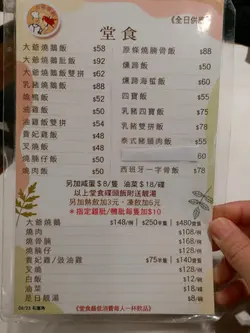 堂食
《全日供應》
大爺燒鵝飯 $58
大爺燒鵝髀飯 $92
大爺燒鵝飯雙拼
乳豬燒鵝飯 $68
燒鴨飯 $52
油雞飯 $50
油雞飯雙拼
貴妃雞飯 $50
叉燒飯 $50
燒腩仔飯 $50
燒肉飯 $50
原條燒腩骨飯 $88
燻蹄飯 $50
燻蹄海蜇飯
四寶飯 $55
乳豬四寶飯 $75
乳豬雙拼飯 $78
泰式豬頸肉飯 $55
60
西班牙一字骨飯 $60
另加鹹蛋$8/隻 油菜$18/碟
以上堂食碟頭飯附送靚湯
另加熱飲加3元、凍飲加6元
*指定鵝肶/髀肶每售加$10
大爺燒鵝 $148/例 $250/半隻 $480/隻
燒肉 $108/例
燒骨腩 $168/例
燒腩仔 $108/例
貴妃雞/豉油雞 $75/半隻 $140/隻
叉燒
白飯
油菜 $18/碟
是日靚湯
《堂食最低消費每人一杯飲品》